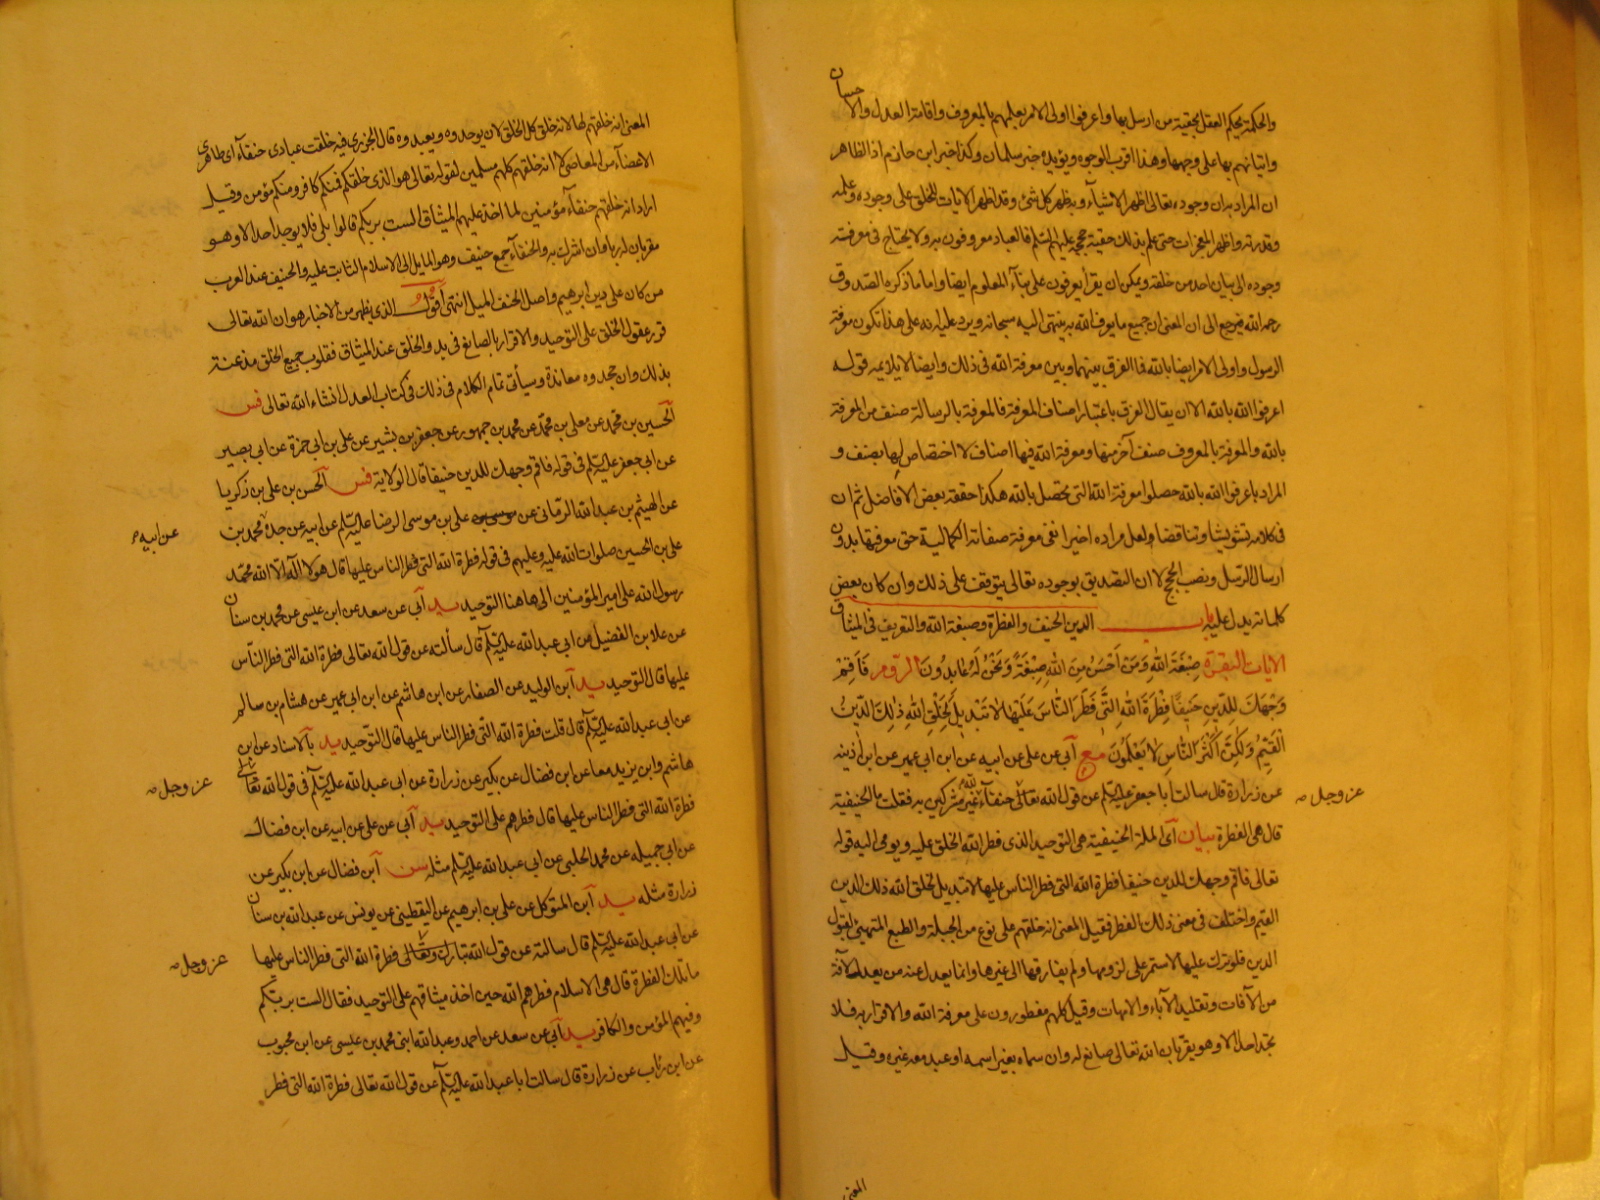 والحكمة بحكم العقل بحقية من ارسل بها واعرفوا اولى الامر بعلمهم بالمعروف واقامة العدل والا
حسان
واتيانهم بها على وجهها وهذا اقرب الوجوه ويؤيده خبر سلمان وكذا خبر ابن حازم اذ الظاهر
ان المراد به ان وجوده تعالى اظهر الاشياء وبه ظهر كل شئ وقد اظهر الايات للخلق على وجوده وعلمه
وقدرته واظهر المعجزات حتى علم بذلك حقية حججه عليهم السلم فالعباد معروفون به ولا يحتاج فى معرفته
وجوده الى بيان احد من خلقه ويمكن ان يقرأ يعرفون على بناء المعلوم ايضا واما ما ذكره الصدوق
رحمه الله فيرجع الى ان المعنى ان جميع ما يعرف الله به ينتهى اليه سبحانه ويرد عليه انه على هذا تكون معرفة
الرسول واولى الامر ايضا بالله فما الفرق بينهما وبين معرفة الله فى ذلك وايضا لا يلايمه قوله
اعرفوا الله بالله الا ان يقال الفرق باعتبار اصناف المعرفة فالمعرفة بالرسالة صنف من المعرفة
بالله والمعرفة بالمعروف صنف آخر منها ومعرفة الله فيها اصناف لا اختصاص لها بصنف و
المراد باعرفوا الله بالله حصلوا معرفة الله التى تحصل بالله هكذا حققه بعض الافاضل ثم ان
فى كلامه تشويشا وتناقضا ولعل مراده اخيرا نفى معرفة صفاته الكمالية حق معرفتها بدون
ارسال الرسل ونصب الحجج لا ان التصديق بوجوده تعالى يتوقف على ذلك وان كان بعض
كلماته يدل عليه باب الدين الحنيف والفطرة وصبغة الله والتعريف فى الميثاق
الايات البقرة صِبْغَةَ اللهِ وَمَنْ اَحْسَنُ مِنَ اللهِ صِبْغَةً وَنَحْنُ لَهُ عابِدُونَ الروم فَاَقِمْ
وَجْهَكَ لِلدّينِ حَنيفًا فِطْرَةَ اللهِ الَّتى فَطَرَ النّاسَ عَلَيْها لا تَبْديلَ لِخَلْقِ اللهِ ذلِكَ الدّينُ
الْقَيِّمُ وَلكِنَّ اَكْثَرَ النّاسِ لا يَعْلَمُونَ مع أبى عن على عن ابيه عن ابن ابى عمير عن ابن اذينه
عن زرارة قال سالت ابا جعفر عليه السلم عن قول الله تعالى حنفاء لله غير مشركين به فقلت ما الحنيفية
عز وجل صح
قال هى الفطرة بيان اى الملة الحنيفية هى التوحيد الذى فطر الله الخلق عليه ويومى اليه قوله
تعالى فاقم وجهك للدين حنيفا فطرة الله التى فطر الناس عليها لا تبديل لخلق الله ذلك الدين
القيم واختلف فى معنى ذلك الفطر فقيل المعنى انه خلقهم على نوع من الجبلة والطبع المتهيئ لقبول
الدين فلو ترك عليها لاستمر على لزومها ولم يفارقها الى غيرها وانما يعدل عنه من يعدل لآفة
من الآفات وتقليد الآباء والامهات وقيل كلهم مفطورون على معرفة الله والاقرار به فلا
تجد احدا الا وهو يقر بان الله تعالى صانع له وان سماه بغير اسمه او عبد معه غيره وقيل
المعنى
المعنى انه خلقهم لها لانه خلق كل الخلق لان يوحدوه ويعبدوه قال الجزرى فيه خلقت عبادى حنفآء اى طاهرى
الاعضآء من المعاصى لا انه خلقهم كلهم مسلمين لقوله تعالى هو الذى خلقكم فمنكم كافر ومنكم مؤمن وقيل
اراد انه خلقهم حنفآء مؤمنين لما اخذ عليهم الميثاق الست بربكم قالوا بلى فلا يوجد احد الا وهو
مقر بان له ربا وان اشرك به والحنفآء جمع حنيف وهو المايل الى الاسلام الثابت عليه والحنيف عند العرب
من كان على دين ابرهيم واصل الحنف الميل انتهى اقول الذى يظهر من الاخبار هو ان الله تعالى
قرر عقول الخلق على التوحيد والاقرار بالصانع فى بدو الخلق عند الميثاق فقلوب جميع الخلق مذعنة
بذلك وان جحدوه معاندة وسيأتى تمام الكلام فى ذلك فى كتاب العدل انشاء الله تعالى فس
الحسين بن محمد عن معلى بن محمد عن محمد بن جمهور عن جعفر بن بشير عن على بن ابى حمزة عن ابى بصير
عن ابى جعفر عليه السلم فى قوله فاقم وجهك للدين حنيفا قال الولاية فس الحسن بن على بن زكريا
عن الهيثم بن عبد الله الرمانى عن على بن موسى الرضا عليه السلم عن ابيه عن جده محمد بن
عن ابيه صح
على بن الحسين صلوات الله عليه وعليهم فى قوله فطرة الله التى فطر الناس عليها قال هو لا اله الا الله محمد
رسول الله على امير المؤمنين الى هاهنا التوحيد يد أبى عن سعد عن ابن عيسى عن محمد بن سنان
عن علا بن الفضيل عن ابى عبد الله عليه السلم قال سالته عن قول الله تعالى فطرة الله التى فطر الناس
عليها قال التوحيد يد ابن الوليد عن الصفار عن ابن هاشم عن ابن ابى عمير عن هشام بن سالم
عن ابى عبد الله عليه السلم قال قلت فطرة الله التى فطر الناس عليها قال التوحيد يد بالاسناد عن ابن
هاشم وابن يزيد معا عن ابن فضال عن بكير عن زرارة عن ابى عبد الله عليه السلم فى قول الله تعالى
عز وجل صح
فطرة الله التى فطر الناس عليها قال فطرهم على التوحيد يد أبى عن على عن ابيه عن ابن فضال
عن ابى جميله عن محمد الحلبى عن ابى عبد الله عليه السلم مثله سن ابن فضال عن ابن بكير عن
زرارة مثله يد ابن المتوكل عن على بن ابرهيم عن اليقطينى عن يونس عن عبد الله بن سنان
عن ابى عبد الله عليه السلم قال سالته عن قول الله تبارك وتعالى فطرة الله التى فطر الناس عليها
عز وجل صح
ما تلك الفطرة قال هى الاسلام فطرهم الله حين اخذ ميثاقهم على التوحيد فقال الست بربكم
وفيهم المؤمن والكافر يد أبى عن سعد عن احمد وعبد الله ابنى محمد بن عيسى عن ابن محبوب
عن ابن رئاب عن زرارة قال سالت ابا عبد الله عليه السلم عن قول الله تعالى فطرة الله التى فطر